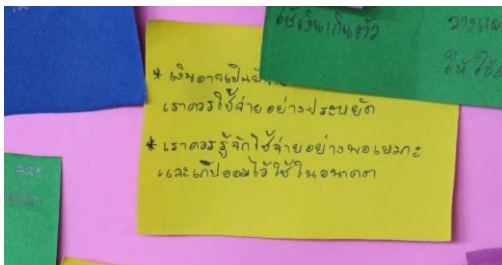 ใช้เงินเกินตัว
ให้ใช้
* เงินอาจเป็น
เราควรใช้จ่ายอย่างประหยัด
* เราควรรู้จักใช้จ่ายอย่างพอเหมาะ
และเก็บออมไว้ใช้ในอนาคต